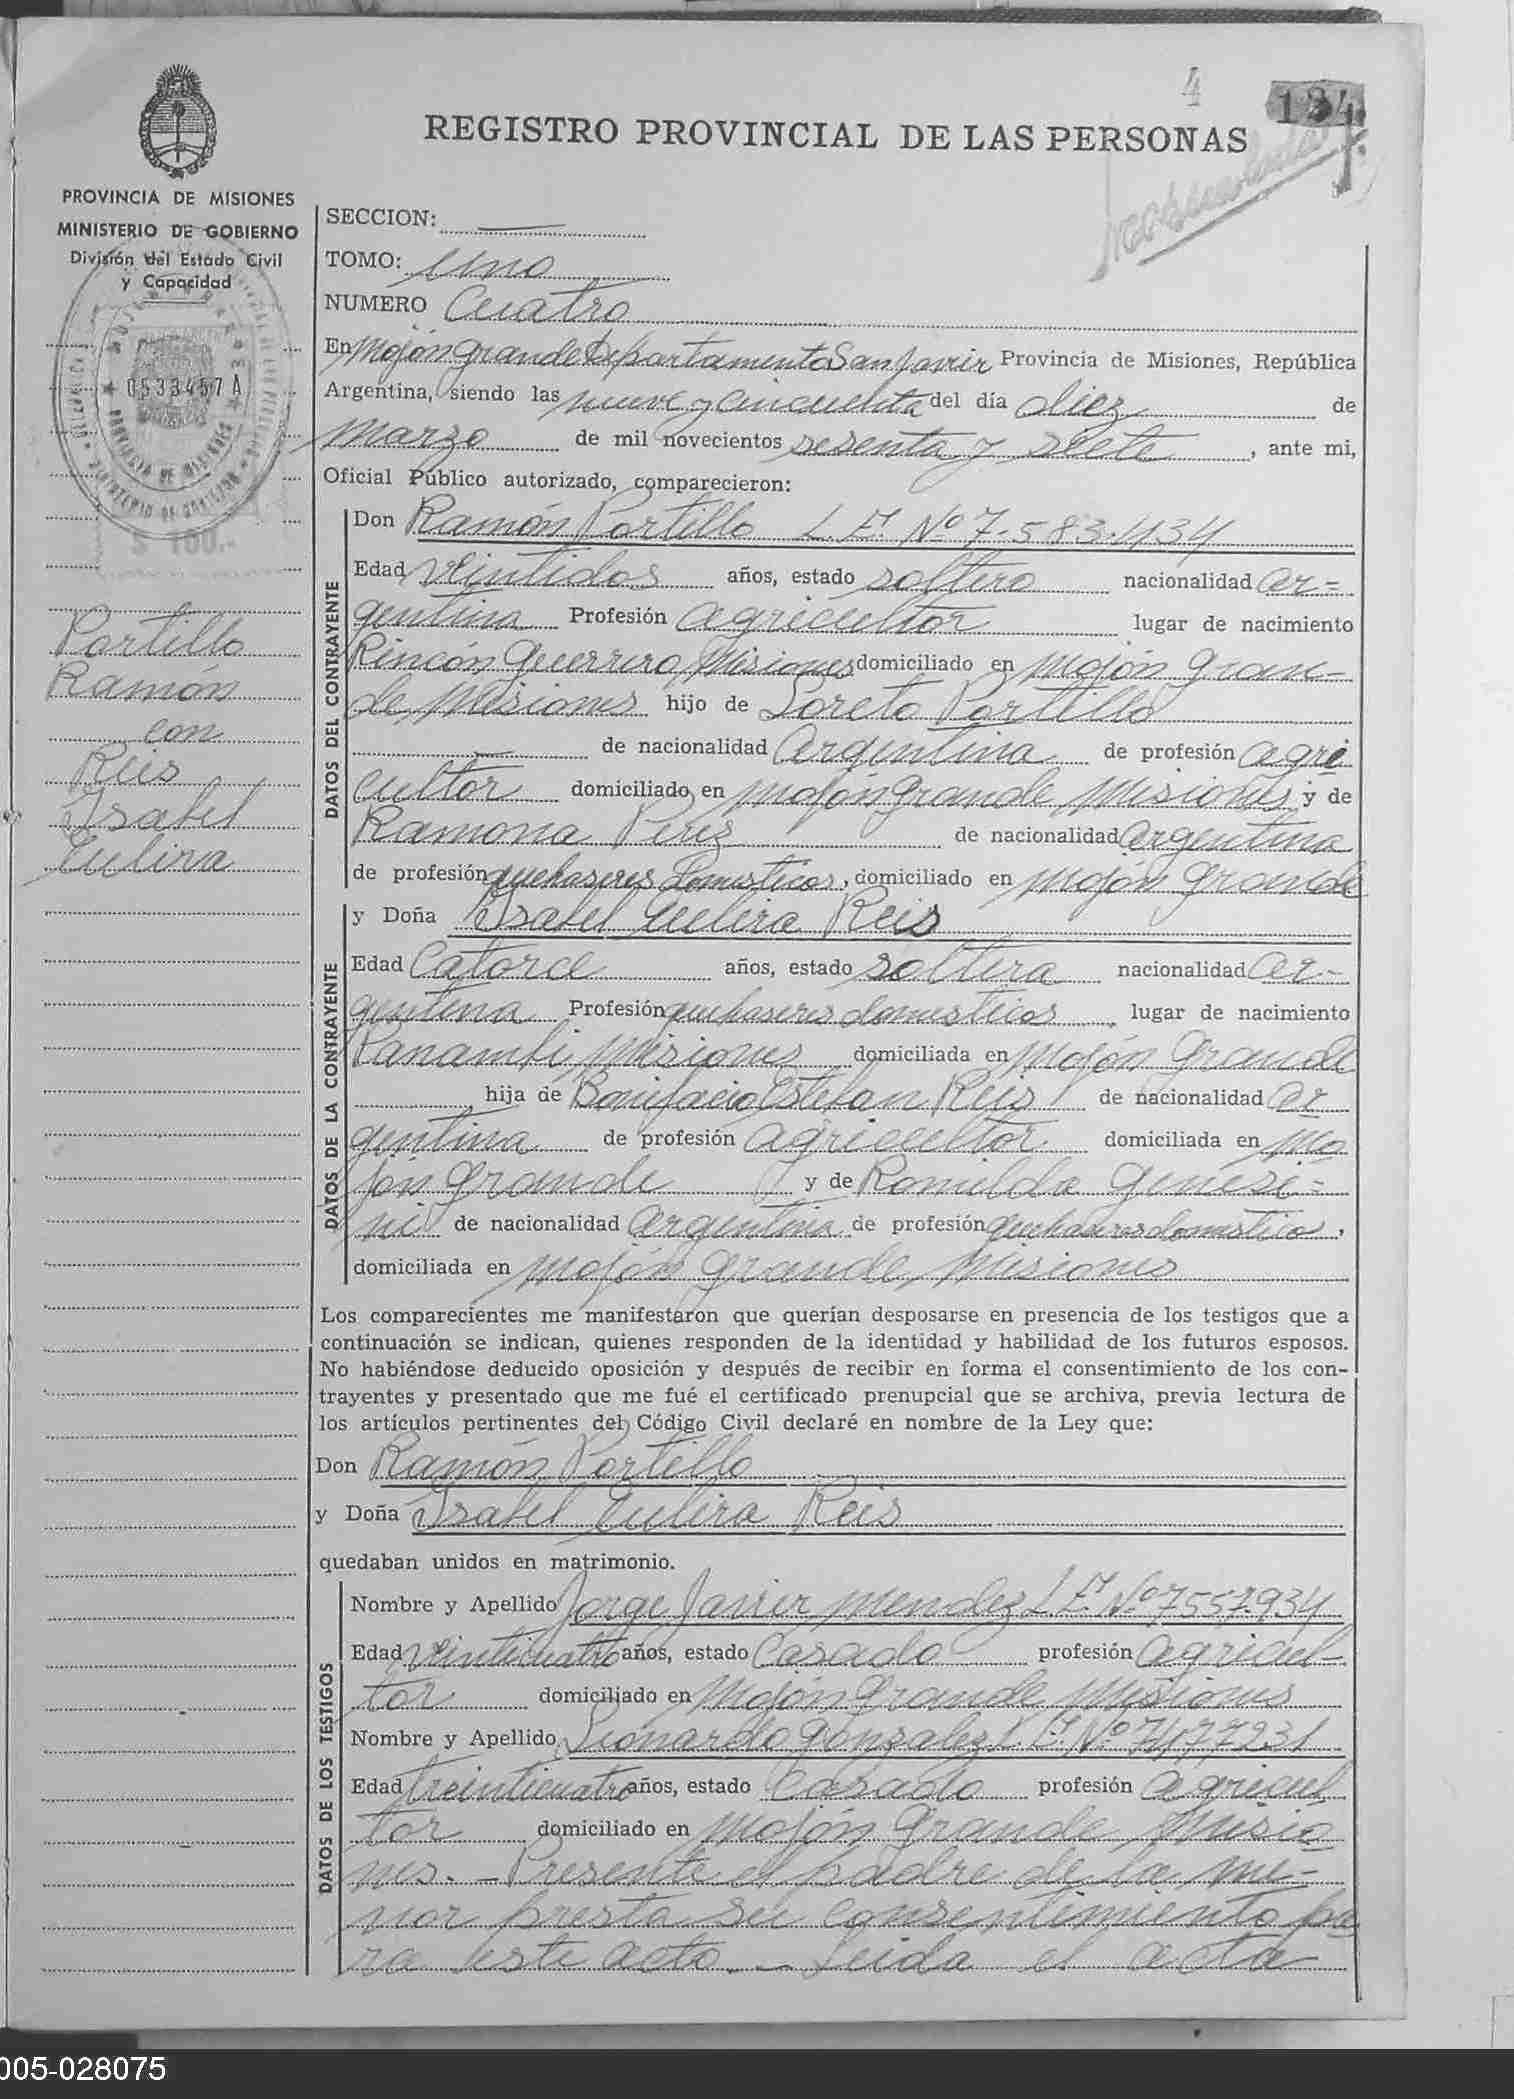 4
184
REGISTRO PROVINCIAL DE LAS PERSONAS
PROVINCIA DE MISIONES
MINISTERIO DE GOBIERNO
División del Estado Civil
y Capacidad
0533457 A
PROVINCIA DE MISIONES
$ 100.-
Portillo
Ramón
con
Reis
Isabel
Eulira
SECCION: —
TOMO: uno
NUMERO Cuatro
En Mojón Grande Departamento San Javier Provincia de Misiones, República
Argentina, siendo las nueve y cincuenta del día diez de
marzo de mil novecientos sesenta y siete, ante mi,
Oficial Público autorizado, comparecieron:
DATOS DEL CONTRAYENTE
Don Ramón Portillo L.E. Nº 7.583.434
Edad veintidos años, estado soltero nacionalidad ar=
gentina Profesión agricultor lugar de nacimiento
Rincón Guerrero, Misiones domiciliado en Mojón Gran-
de, Misiones hijo de Loreto Portillo
— de nacionalidad Argentina de profesión agri
cultor domiciliado en Mojón Grande Misiones y de
Ramona Perez de nacionalidad Argentina
de profesión quehaseres Domesticos, domiciliado en Mojón Grande
DATOS DE LA CONTRAYENTE
y Doña Isabel Eulira Reis
Edad Catorce años, estado soltera nacionalidad Ar-
gentina Profesión quehaseres domesticos, lugar de nacimiento
Panambi, Misiones domiciliada en Mojón Grande
hija de Bonifacio Esteban Reis de nacionalidad Ar
gentina de profesión agricultor domiciliada en Mo
jón Grande y de Romilda Genesi=
ni de nacionalidad Argentina de profesión quehaseres domestico,
domiciliada en Mojón Grande, Misiones
Los comparecientes me manifestaron que querían desposarse en presencia de los testigos que a
continuación se indican, quienes responden de la identidad y habilidad de los futuros esposos.
No habiéndose deducido oposición y después de recibir en forma el consentimiento de los con-
trayentes y presentado que me fué el certificado prenupcial que se archiva, previa lectura de
los artículos pertinentes del Código Civil declaré en nombre de la Ley que:
Don Ramón Portillo
y Doña Isabel Eulira Reis
quedaban unidos en matrimonio.
DATOS DE LOS TESTIGOS
Nombre y Apellido Jorge Javier Mendez L.E. Nº 7557934
Edad veinticuatro años, estado Casado profesión agricul-
tor domiciliado en Mojón Grande Misiones
Nombre y Apellido Leonardo Gonzalez L.E. Nº 7477231
Edad treinticuatro años, estado Casado profesión agricul
tor domiciliado en Mojón Grande, Misio
nes. - Presente el padre de la me-
nor presta su consentimiento pa
ra este acto. - Leida el acta
005-028075